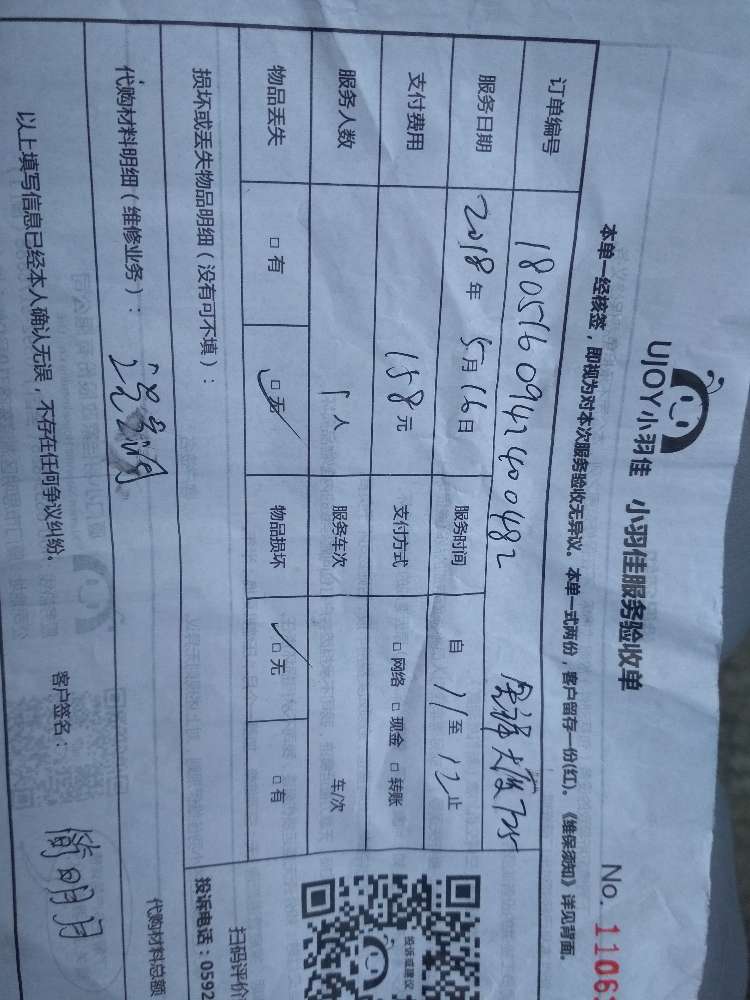 UJOY小羽佳 小羽佳服务验收单
No. 1106
本单一经核签，即视为对本次服务验收无异议。本单一式两份，客户留存一份(红)。《维保须知》详见背面。
订单编号 1805160942400482
服务日期 2018年5月16日 服务时间 自 11 至 12 止
支付费用 158元 支付方式 □网络 □现金 □转账
服务人数 1人 服务车次 车/次
物品丢失 □有 □无 物品损坏 □无 □有
损坏或丢失物品明细（没有可不填）：
扫码评价
投诉或建议
投诉电话：0592
代购材料明细（维修业务）：
代购材料总额
以上填写信息已经本人确认无误，不存在任何争议纠纷。 客户签名：